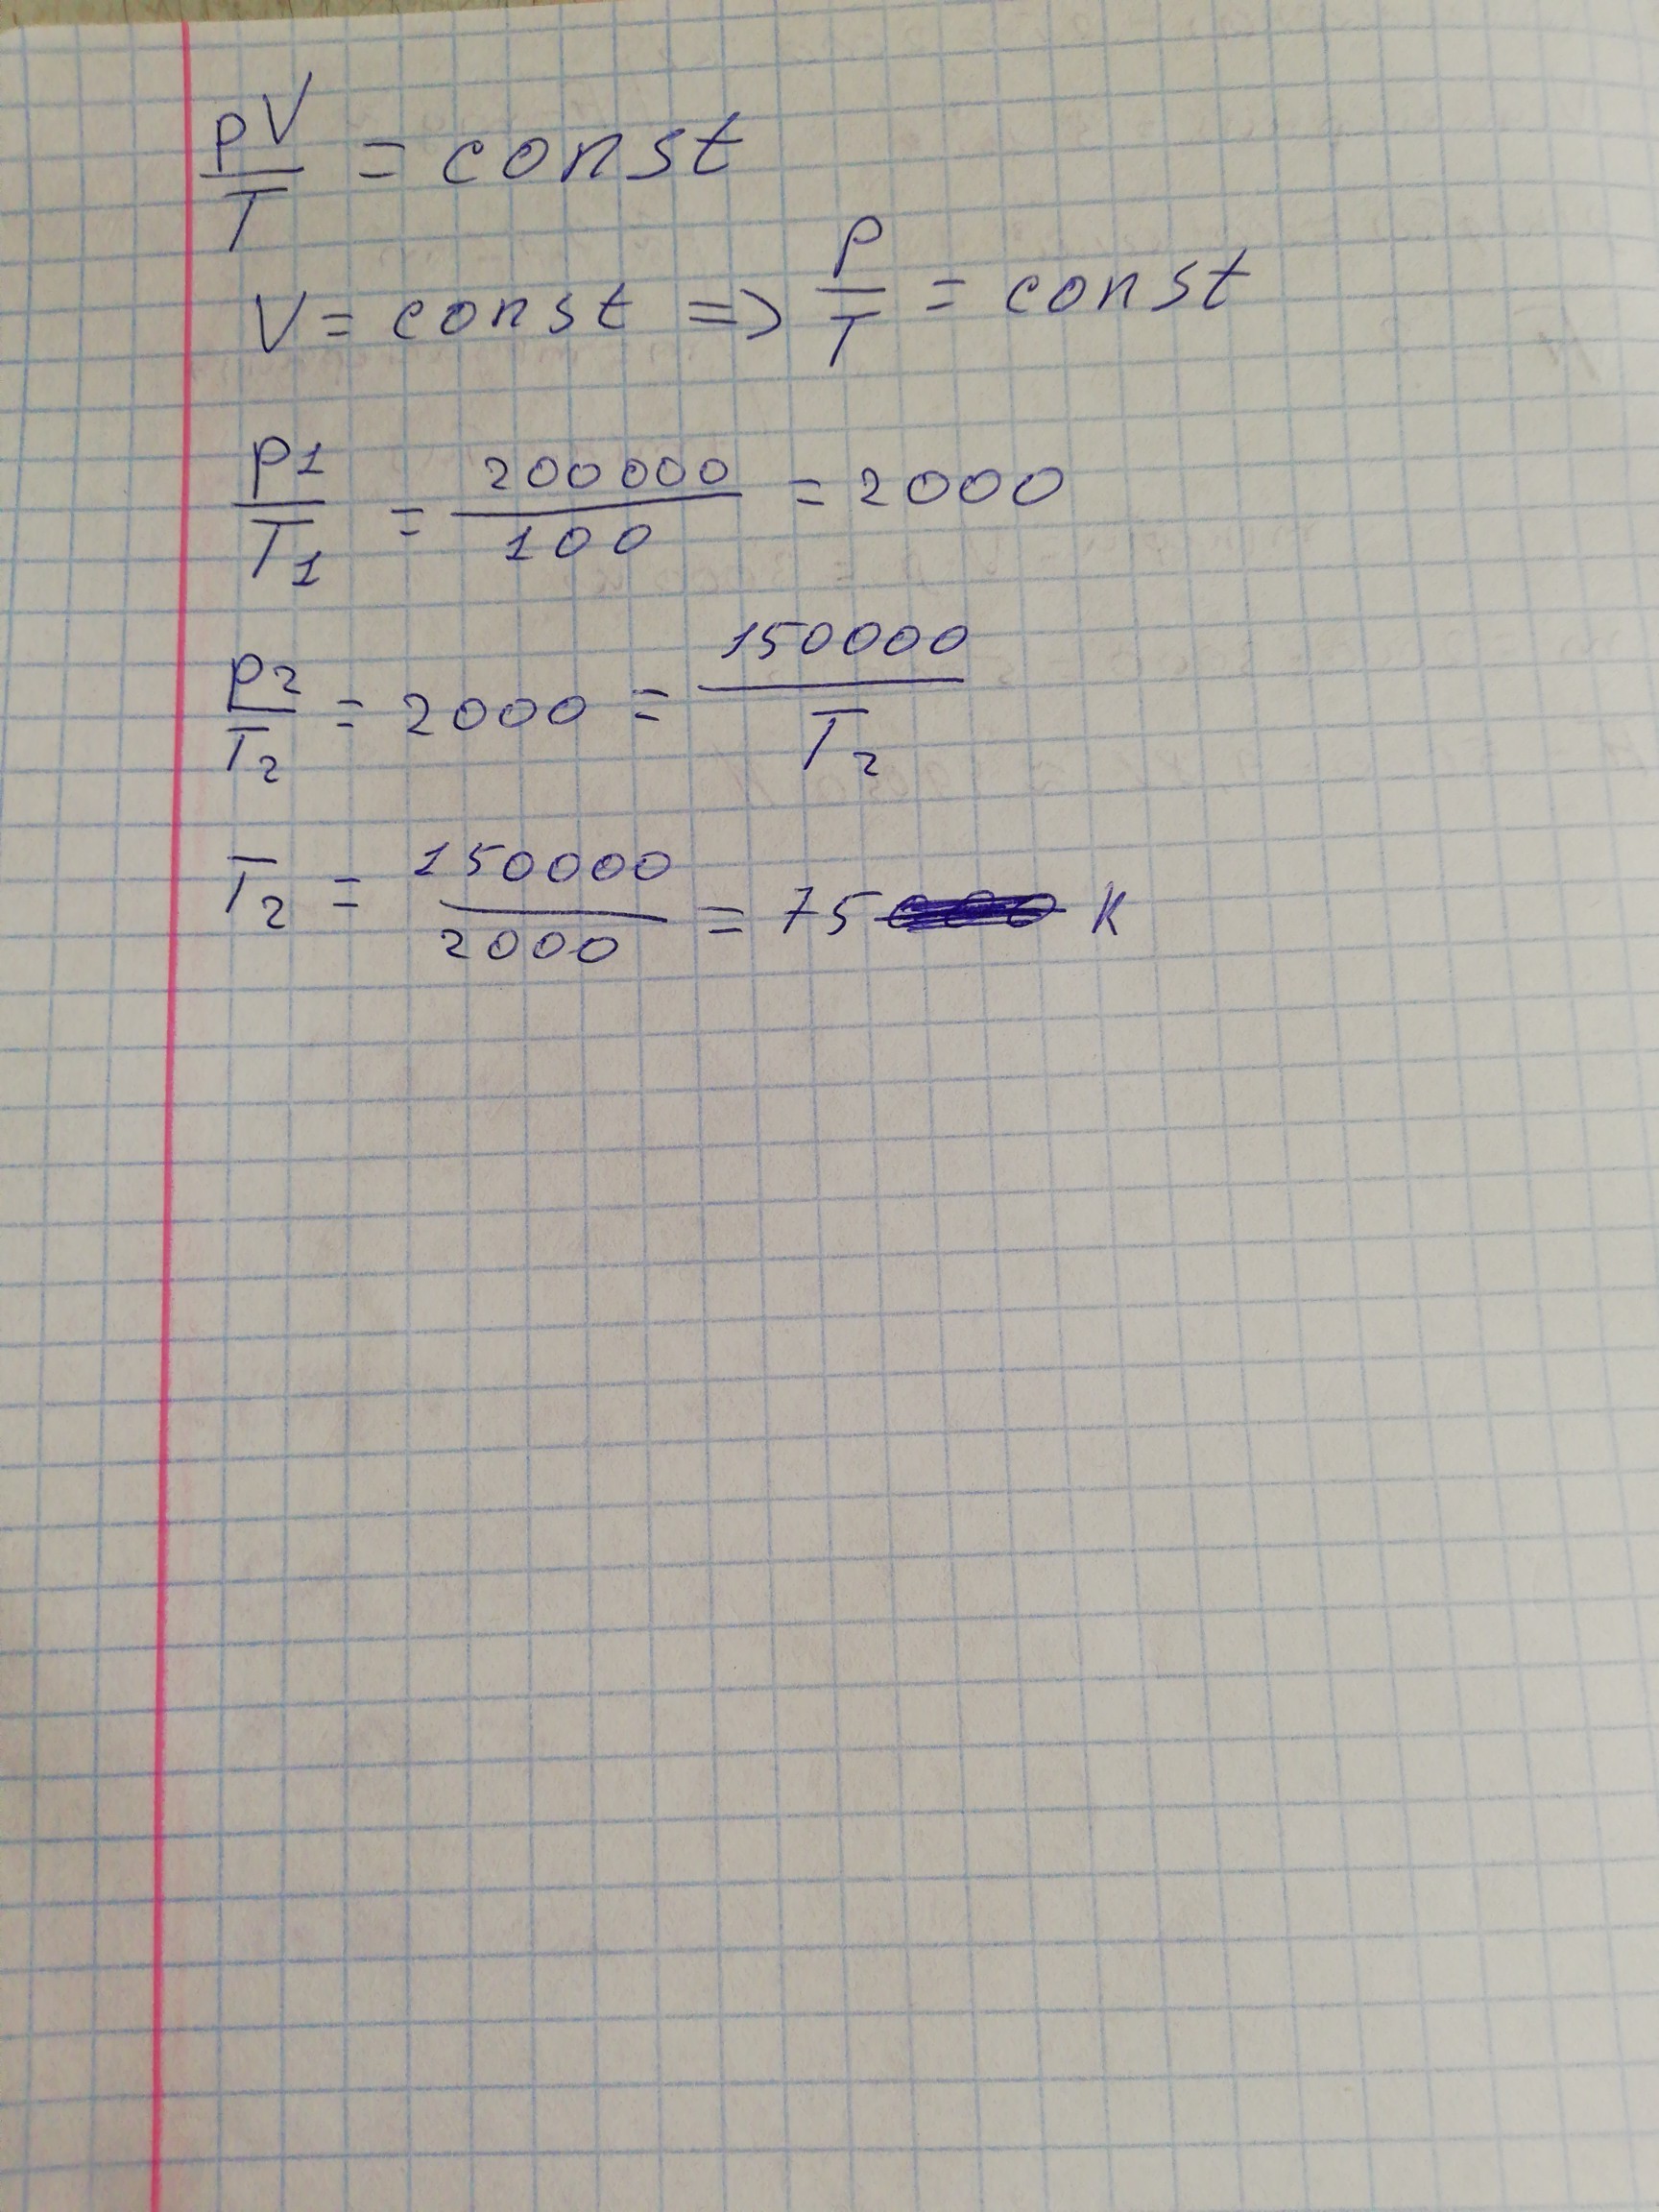 pV/T = const
V = const => P/T = const
P1/T1 = 200000/100 = 2000
P2/T2 = 2000 = 150000/T2
T2 = 150000/2000 = 75 K